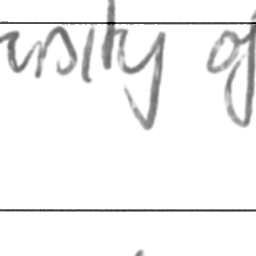 ersity of